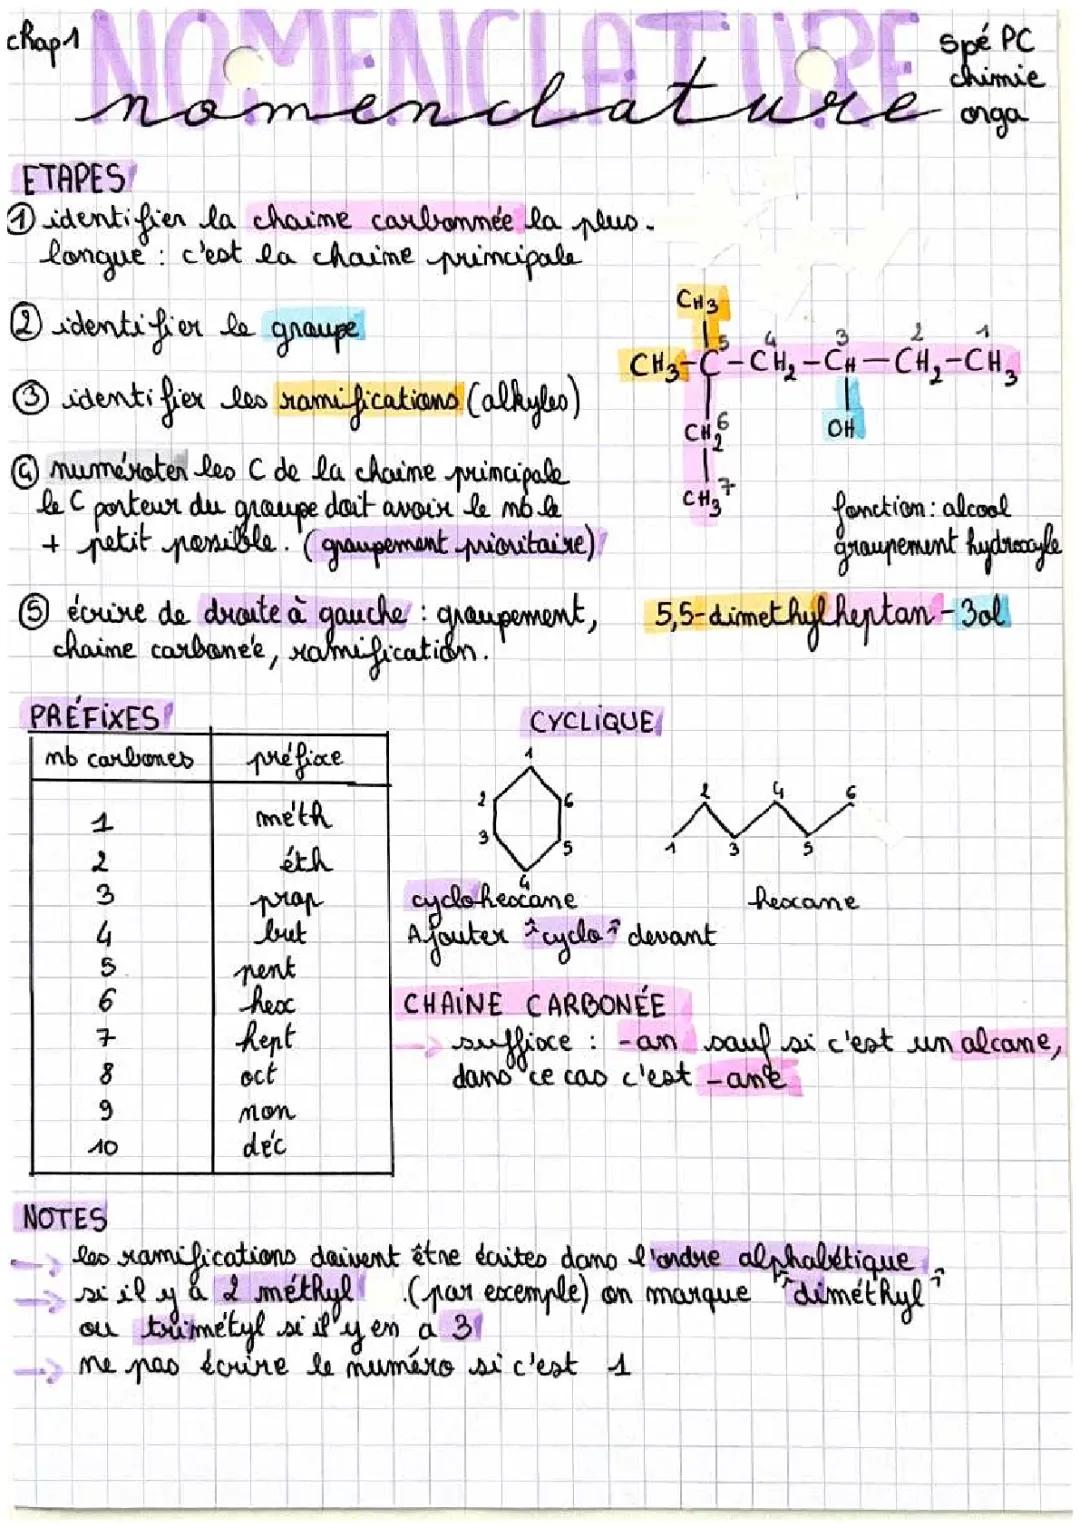 chap 1
NOMENCLATURE
nomenclature
Spé PC
chimie
orga
ETAPES
① identifier la chaine carbonnée la plus
longue : c'est la chaine principale
② identifier le groupe
③ identifier les ramifications (alkyles)
④ numéroter les C de la chaine principale
le C porteur du groupe doit avoir le nb le
+ petit possible. (groupement prioritaire)
⑤ écrire de droite à gauche : groupement,
chaine carbonée, ramification.
CH3
5 4 3 2 1
CH3-C-CH2-CH-CH2-CH3
CH2 6
OH
CH3 7
fonction : alcool
groupement hydroxyle
5,5-dimethylheptan-3ol
PRÉFIXES
nb carbones préfixe
1 méth
2 éth
3 prop
4 but
5 pent
6 hex
7 hept
8 oct
9 non
10 déc
CYCLIQUE
1
2 6
3 5
4
2 4 6
1 3 5
cyclohexane
hexane
Ajouter "cyclo" devant
CHAINE CARBONÉE
→ suffixe : -an sauf si c'est un alcane,
dans ce cas c'est -ane
NOTES
→ les ramifications doivent être écrites dans l'ordre alphabétique
→ si il y a 2 méthyl (par exemple) on marque "diméthyl"
ou trimétyl si il y en a 3
→ ne pas écrire le numéro si c'est 1